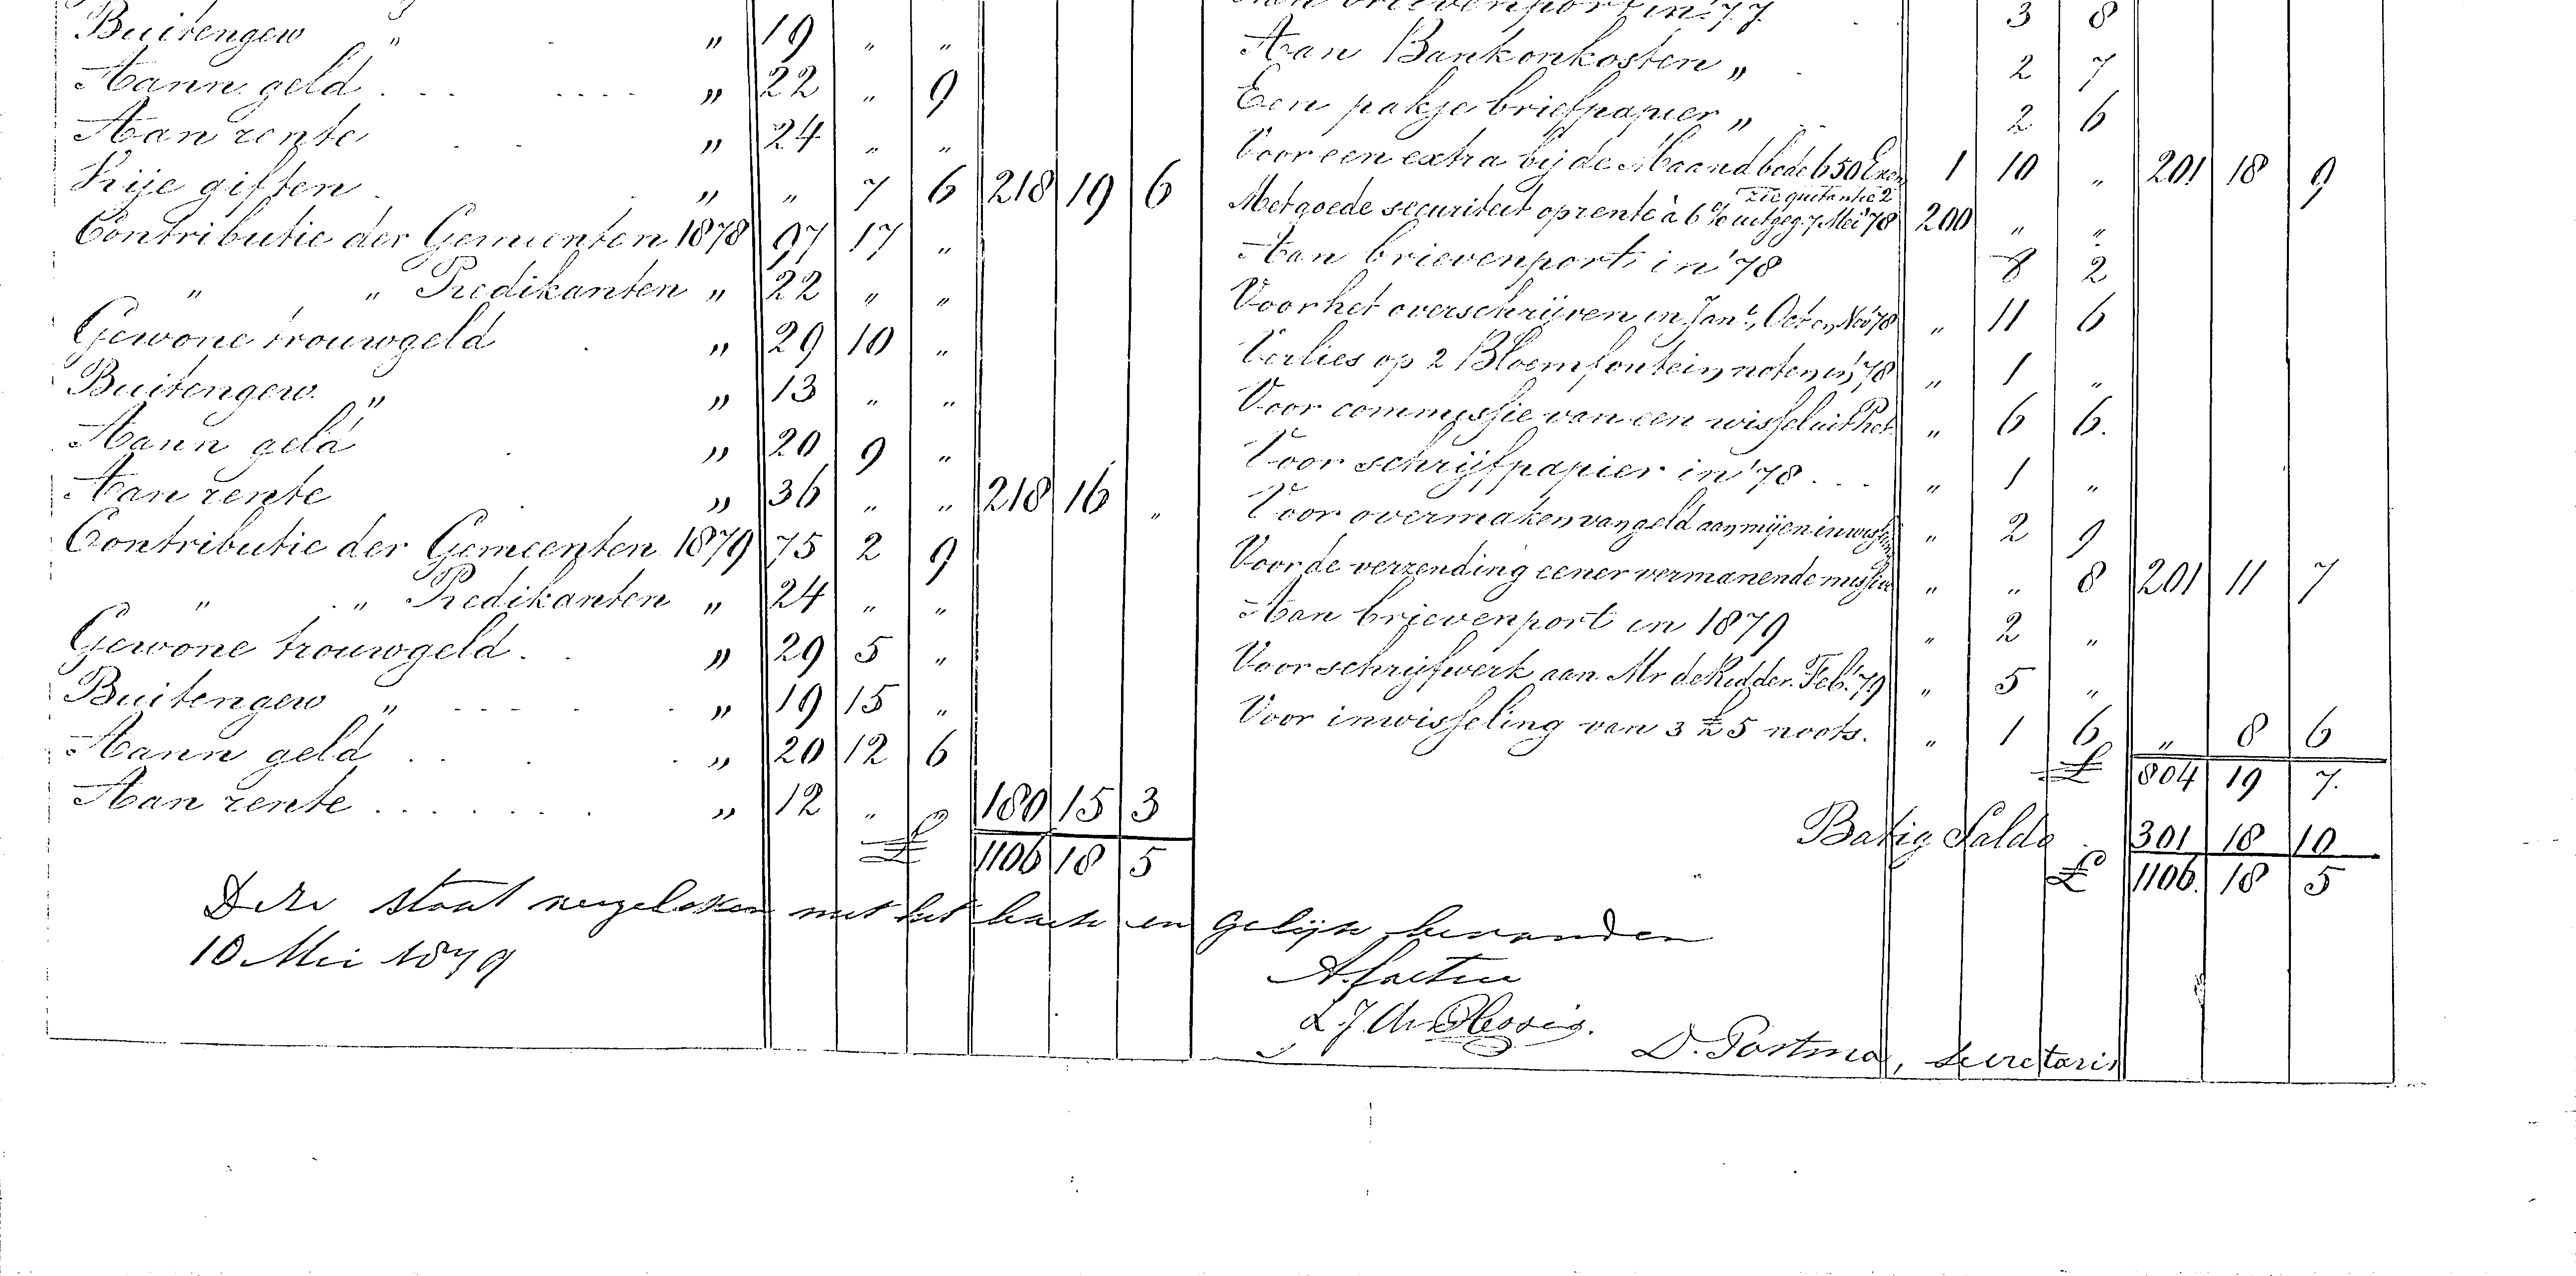 Buitengew „ „ 19 „ „
Aann. geld . . . . . . . „ 22 „ 9
Aan rente „ 24 „ „
Vrije giften „ „ 7 6 218 19 6
Contributie der Gemeenten 1878 97 17 „
„ „ Predikanten „ 22 „ „
Gewone trouwgeld „ 29 10 „
Buitengew. „ „ 13 „ „
Aann geld „ 20 9 „
Aan rente „ 36 „ „ 218 16 „
Contributie der Gemeenten 1879 75 2 9
„ „ Predikanten „ 24 „ „
Gewone trouwgeld . . „ 29 5 „
Buitengew „ „ 19 15 „
Aann geld „ 20 12 6
Aan rente . . . . . . . „ 12 „ „ 180 15 3
£ 1106 18 5
Aan brievenport in '77 3 8
Aan Bankonkosten „ 2 7
Een pakje briefpapier „ 2 6
Voor een extra bij de Maandbode 650 Exen 1 10 „ 201 18 9
zie quitantie 2
Met goede securiteit op rente à 6% uitgeg. 7 Mei '78 200 „ „
Aan brievenport in '78 8 2
Voor het overschrijven in Jan., Oct en Nov '78 „ 11 6
Verlies op 2 Bloemfontein noten in '78 „ 1 „
Voor commissie van een wissel uit „ 6 6.
Voor schrijfpapier in '78 . . . „ 1 „
Voor overmaken van geld aan mij en „ 2 9
Voor de verzending eener vermanende missive „ „ 8 201 11 7
Aan brievenport in 1879 „ 2 „
Voor schrijfwerk aan Mr de Ridder Feb. '79 „ 5 „
Voor inwisseling van 3 £5 noots. „ 1 6 „ 8 6
£ 804 19 7.
Batig Saldo 301 18 10
£ 1106. 18 5
Deze staat vergeleken met het boek en gelijk bevonden
10 Mei 1879
L. J. du Plessis.
D. Postma, Secretaris